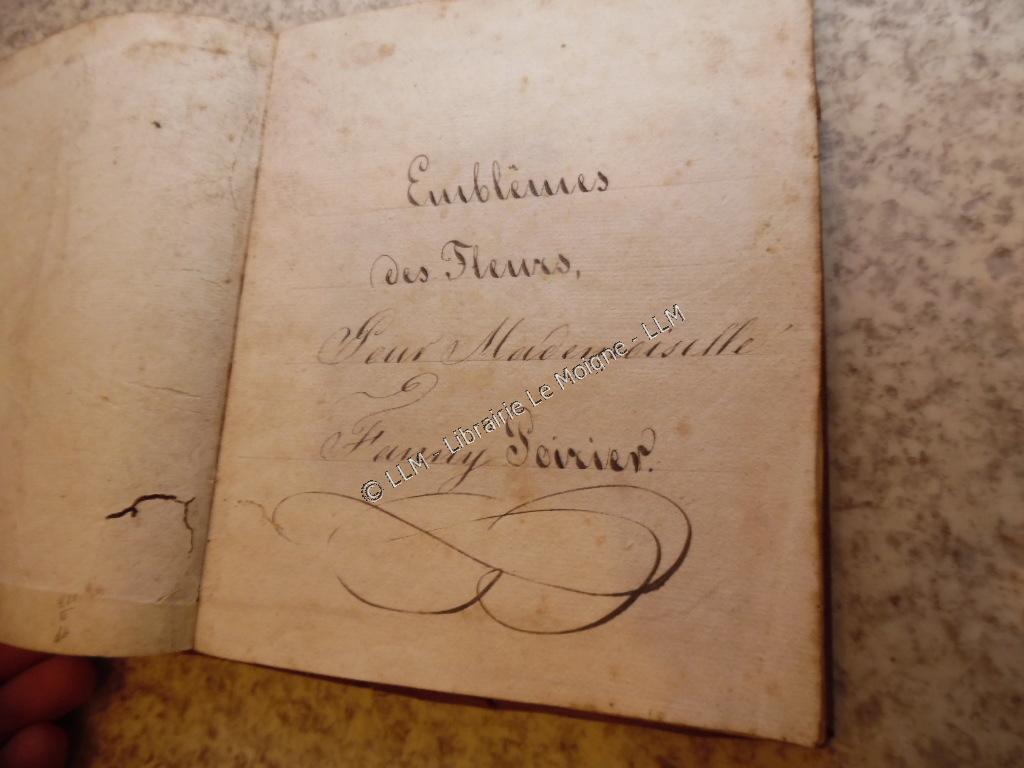 Emblêmes
des Fleurs,
Pour Mademoiselle
Fanny Poirier.
© LLM - Librairie Le Moigne - LLM